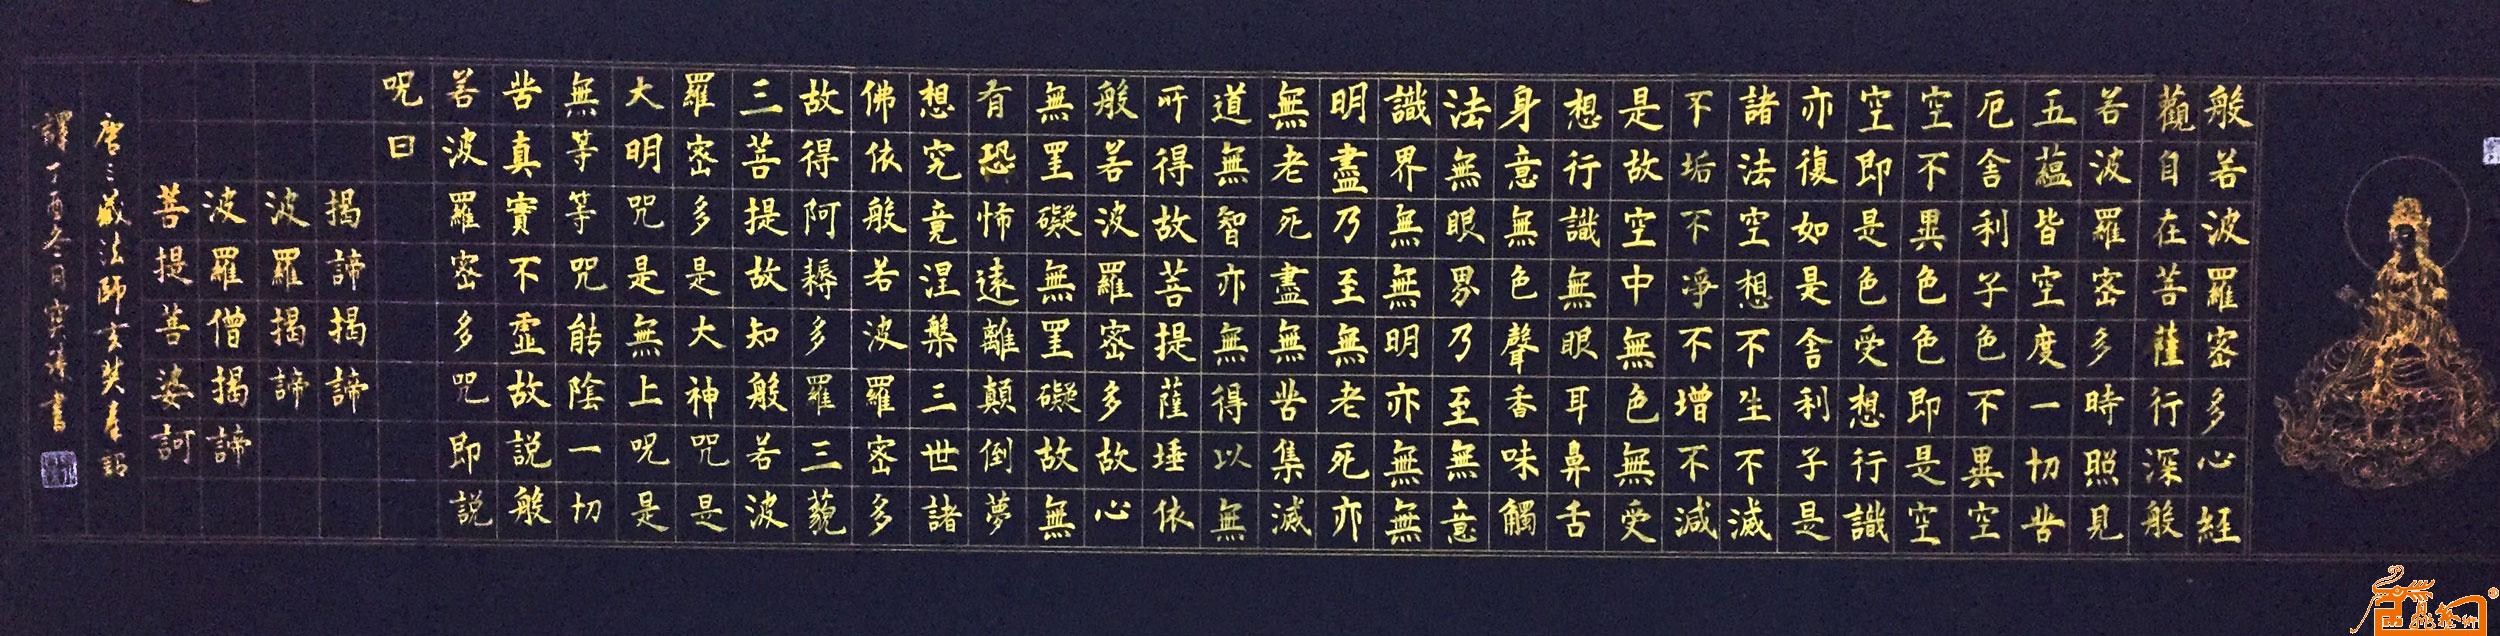 般若波羅密多心經
觀自在菩薩行深般
若波羅密多時照見
五蘊皆空度一切苦
厄舍利子色不異空
空不異色色即是空
空即是色受想行識
亦復如是舍利子是
諸法空想不生不滅
不垢不淨不增不減
是故空中無色無受
想行識無眼耳鼻舌
身意無色聲香味觸
法無眼界乃至無意
識界無無明亦無無
明盡乃至無老死亦
無老死盡無苦集滅
道無智亦無得以無
所得故菩提薩埵依
般若波羅密多故心
無罣礙無罣礙故無
有恐怖遠離顛倒夢
想究竟涅槃三世諸
佛依般若波羅密多
故得阿耨多羅三藐
三菩提故知般若波
羅密多是大神呪是
大明呪是無上呪是
無等等呪能陰一切
苦真實不虛故説般
若波羅密多呪即説
呪曰
揭諦揭諦
波羅揭諦
波羅僧揭諦
菩提菩娑訶
唐三藏法師玄奘奉詔
譯丁酉冬月 書